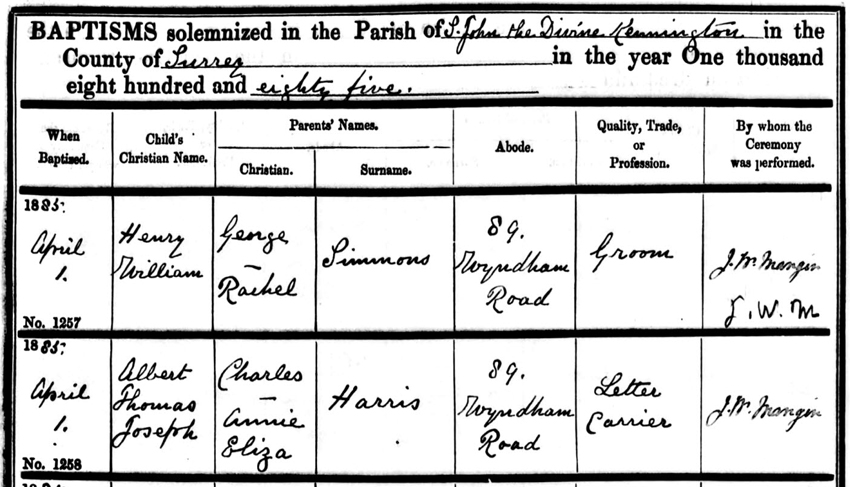 BAPTISMS solemnized in the Parish of S. John the Divine Kennington in the
County of Surrey in the year One thousand
eight hundred and eighty five.
When Baptized.
Child's Christian Name.
Parents' Names.
Christian.
Surname.
Abode.
Quality, Trade, or Profession.
By whom the Ceremony was performed.
1885:
April
1.
No. 1257
Henry
William
George
–
Rachel
Simmons
89.
Wyndham
Road
Groom
J. W. Mangin
J. W. M
1885:
April
1.
No. 1258
Albert
Thomas
Joseph
Charles
–
Annie
Eliza
Harris
89.
Wyndham
Road
Letter
Carrier
J. W. Mangin